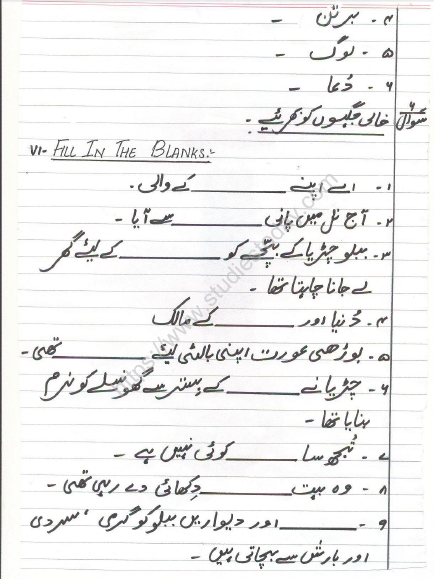 ۴- برتن -
۵- لوگ -
۶- دُعا -
سوال ۶ خالی جگہوں کو بھرئیے -
VI- FILL IN THE BLANKS:-
۱- اے اپنے ________ کے والی -
۲- آج نل میں پانی ________ سے آیا -
۳- ببلو چڑیا کے بچّے کو ________ کے لیٔے گھر
لے جانا چاہتا تھا -
۴- دُنیا اور ________ کے مالک
۵- بوڑھی عورت اپنی بالٹی لیٔے ________ تھی -
۶- چڑیا نے ________ کے پیڑ سے گھونسلے کو نرم
بنایا تھا -
۷- تُجھ سا ________ کوئی نہیں ہے -
۸- وہ بہت ________ دِکھائی دے رہی تھی -
۹- ________ اور دیواریں ببلو کو گرمی ، سردی
اور بارش سے بچاتی ہیں -
https://www.studiestoday.com